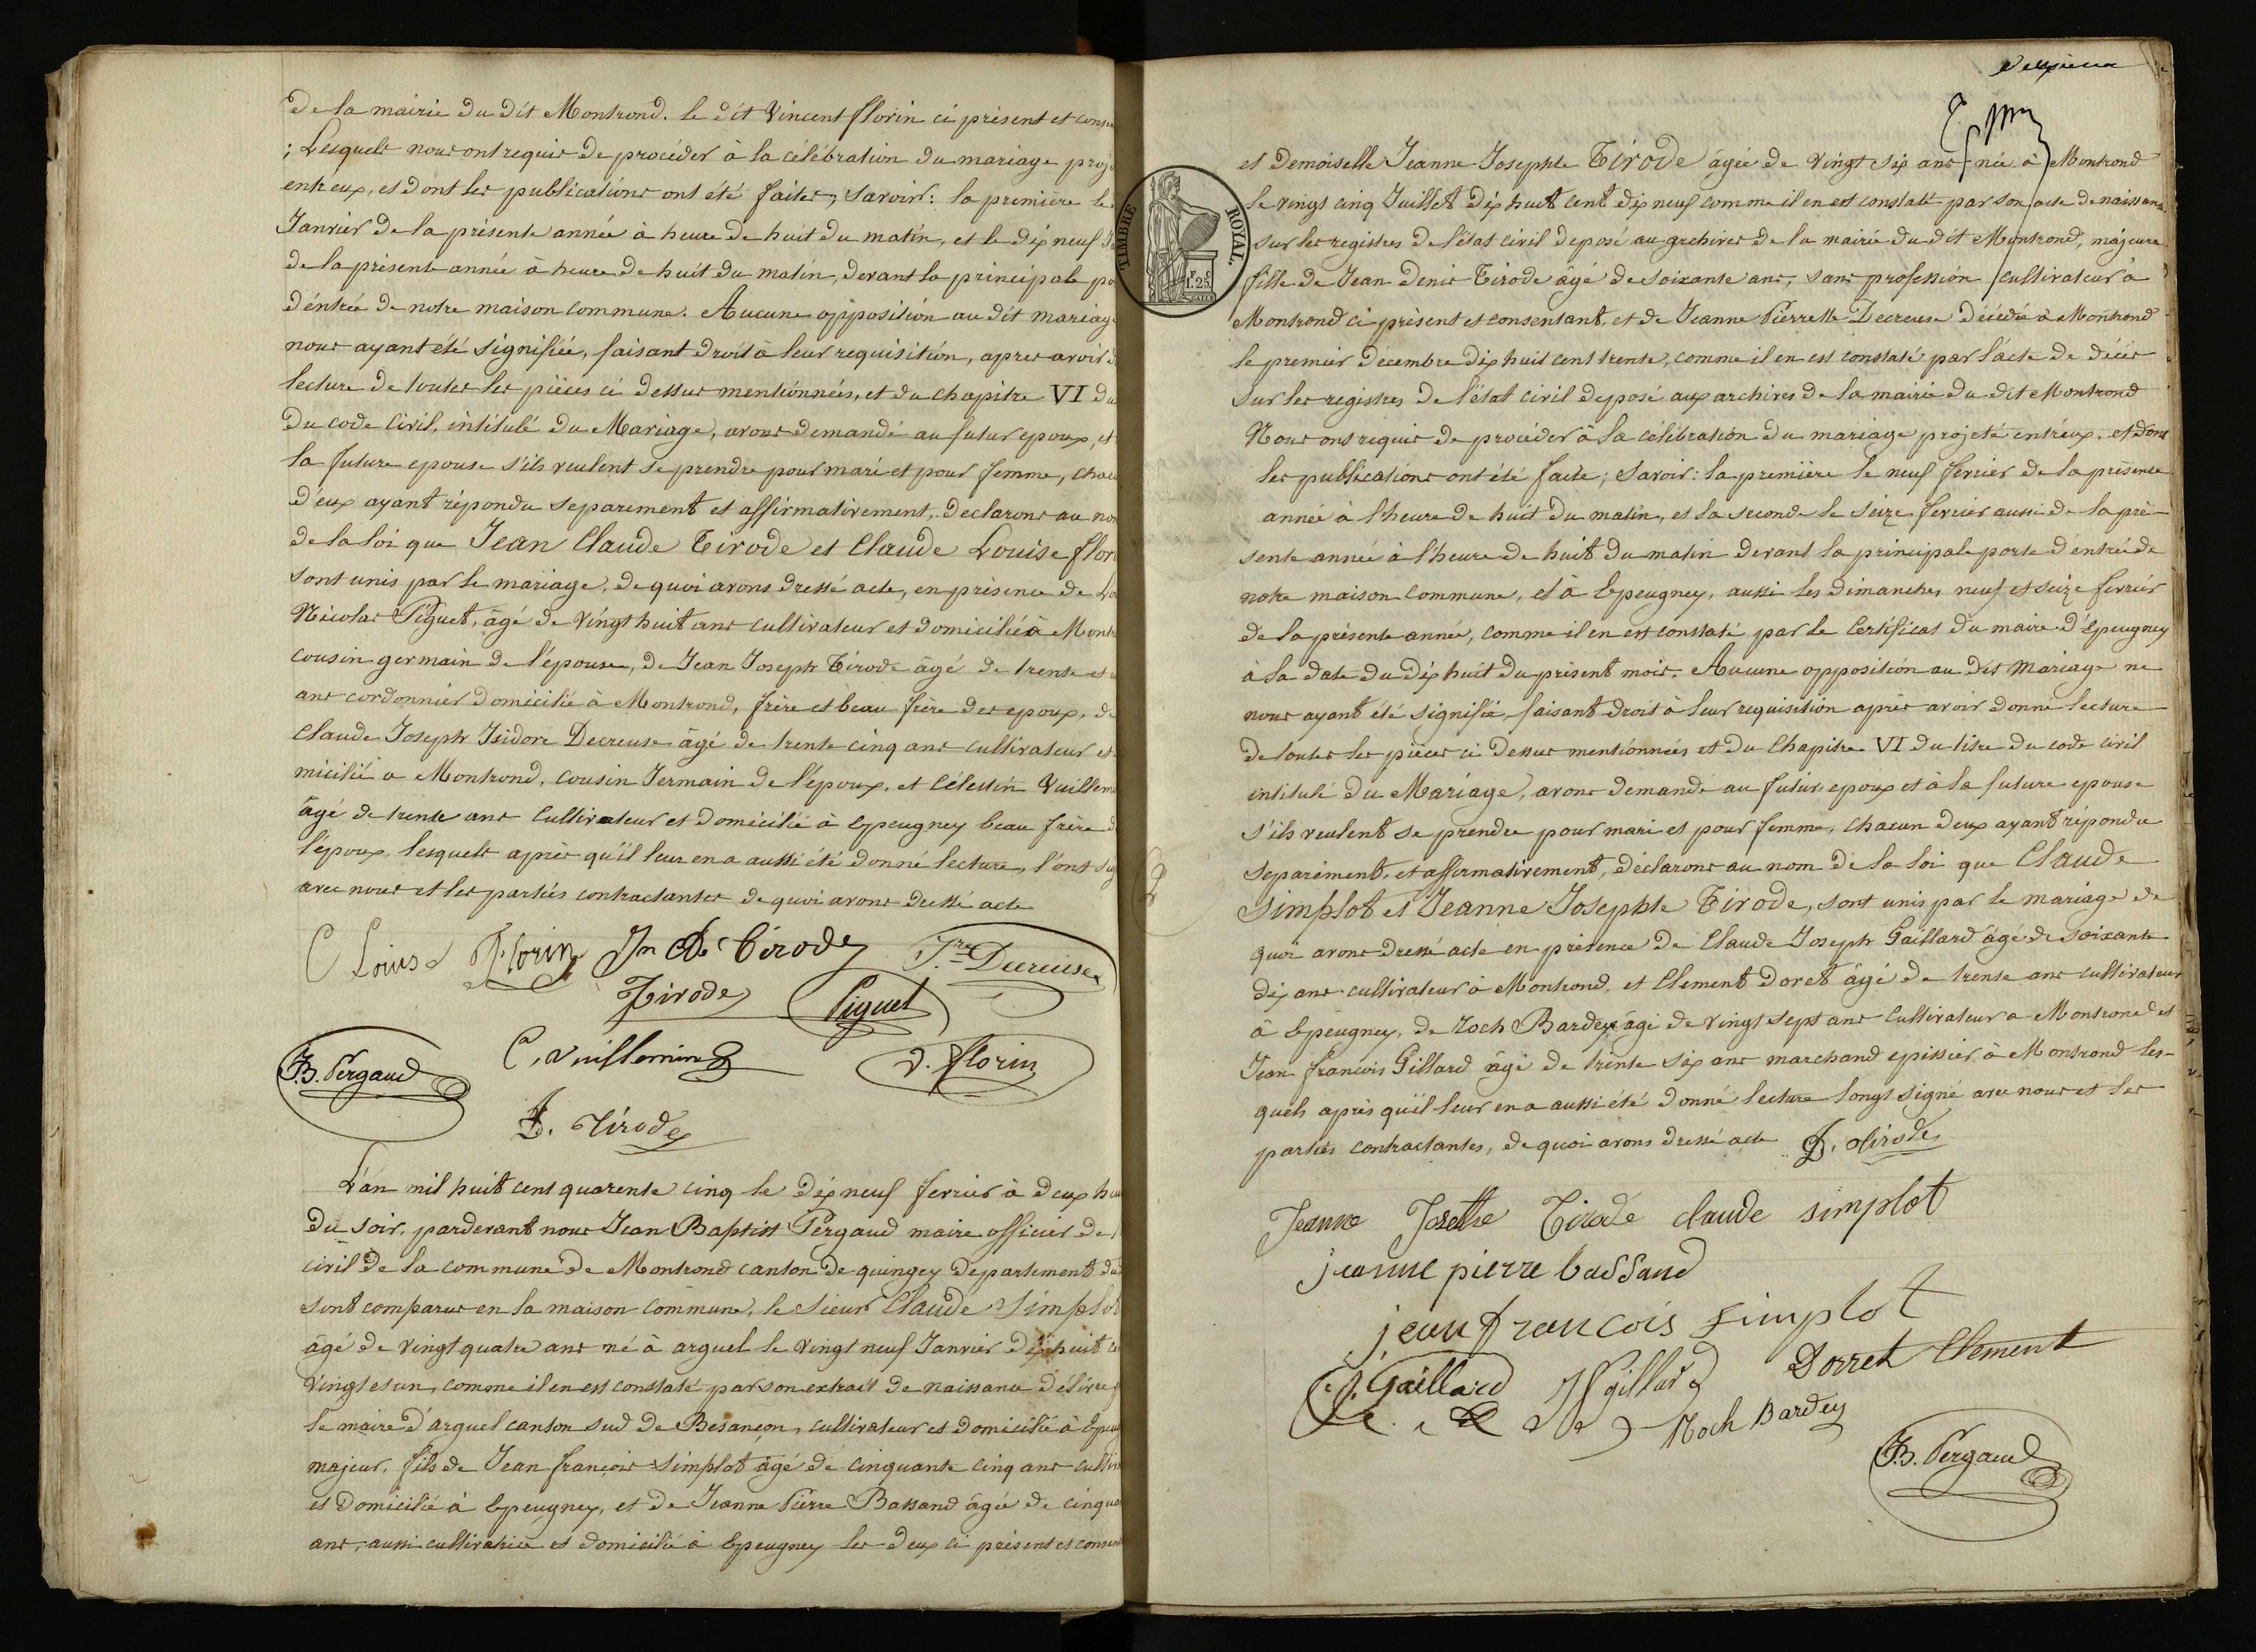 De la mairie du dit Montrond. le dit Vincent florin ci présent et conse
; Lesquels nous ont requis de procéder à la célébration du mariage proje
entreux, et dont les publications ont été faites; Savoir: la première le
Janvier de la présente année à heure de huit du matin, et le dix neuf J
de la présente année à heure de huit du matin, devant la principale po
d'éntrée de notre maison commune. Aucune opposition au dit mariage
nous ayant été signifiée, faisant droit à leur requisition, apres avoir d
lecture de toutes les pièces ci dessus mentionnées, et du chapitre VI du
Du code Civil, intitulé du Mariage, avons demandé au futur epoux, et
la future epouse s'ils veulent se prendre pour mari et pour femme, chac
d'eux ayant répondu separement et affirmativement, declarons au nom
de la loi que Jean Claude Tirode et Claude Louise flori
sont unis par le mariage, de quoi avons dressé acte, en présence de
Nicolas Piguet, âgé de vingt huit ans cultivateur et domicilié à Montr
cousin germain de l'épouse, de Jean Joseph Tirode âgé de trente et
ans cordonnier domicilié à Montrond, frère et beau frère des epoux, de
Claude Joseph Isidore Decreuse âgé de trente cinq ans cultivateur et
micilié a Montrond, cousin Jermain de l'époux, et Célestin Vuillem
âgé de trente ans Cultivateur et domicilié à Epeugney beau frère d
l'epoux, lesquels après qu'il leur en a aussi été donné lecture, l'ont sig
avec nous et les partiés contractantes de quoi avons dressé acte
C Louise Florin Jn Cde Tirode Decreuse
Tirode Piguet
J.B. Pergaud C, Vuillemin V. florin
D. Tirode
L'an mil huit cent quarente cinq le dix neuf fevrier à deux heu
du soir, pardevant nous Jean Baptist Pergaud maire officier de l
civil de la commune de Montrond canton de quingey departement du
sont comparus en la maison commune, le sieur Claude Simplot
âgé de vingt quatre ans né à arguel le vingt neuf Janvier dix huit ce
vingt et un, comme il en est constaté par son extrait de naissance délivré p
le maire d'arguel canton sud de Besançon, cultivateur et domicilié à Epeu
majeur, fils de Jean françois Simplot âgé de cinquante cinq ans cultiv
et domicilié à Epeugney, et de Jeanne Pierre Bassand âgée de cinqua
ans, aussi cultivatrice et domicilié à Epeugney les deux ci présents et consent
TIMBRE ROYAL
1F. 25c
et Demoiselle Jeanne Josephte Tirode âgée de vingt six ans née à Montrond
le vingt cinq Juillet dix huit cent dix neuf comme il en est constaté par son acte de naissance
sur les registres de l'état civil deposé au archives de la mairie du dit Montrond, majeure
fille de Jean Denis Tirode âgé de soixante ans, sans profession cultivateur à
Montrond ci présent et consentant, et de Jeanne Pierrette Decreuse décédée à Montrond
le premier décembre dix huit cent trente, comme il en est constaté par l'acte de décès
sur les registres de l'état civil deposé aux archives de la mairie du dit Montrond
Nous ont requis de procéder à la célébration du mariage projeté entr'eux, et dont
les publications ont été faite; Savoir: la première le neuf fevrier de la présente
année à l'heure de huit du matin, et la seconde le seize fevrier aussi de la pré-
sente année à l'heure de huit du matin devant la principale porte d'entrée de
notre maison commune, et à Epeugney, aussi les dimanches neuf et seize fevrier
de la présente année, comme il en est constaté par le Certificat du maire d'Epeugney
à la date du dix huit du présent mois. Aucune opposition au dit mariage ne
nous ayant été signifié, faisant droit à leur requisition après avoir donné lecture
de toutes les pièces ci dessus mentionnées et du Chapitre VI du titre du code civil
intitulé du Mariage, avons demandé au futur epoux et à la future epouse
s'ils veulent se prendre pour mari et pour femme, chacun deux ayant répondu
separément, et affirmativement, déclarons au nom de la loi que Claude
Simplot et Jeanne Josephte Tirode, sont unis par le mariage de
quoi avons dressé acte en présence de Claude Joseph Gaillard âgé de soixante
dix ans cultivateur à Montrond, et Clement doret âgé de trente ans cultivateur
à Epeugney, de Roch Bardey âgé de vingt sept ans Cultivateur a Montrond et
Jean francois Gillard âgé de trente six ans marchand epissier à Montrond les-
quels après qu'il leur en a aussi été donné lecture l'ongt signé avec nous et les
partiés contractantes, de quoi avons dressé acte D. Tirode
Jeanne Josette Tirode claude simplot
jeanne pierre bassand
jean francois simplot
C. J. Gaillard JF gillard Dorret Clement
Roch Bardey
J.B. Pergaud